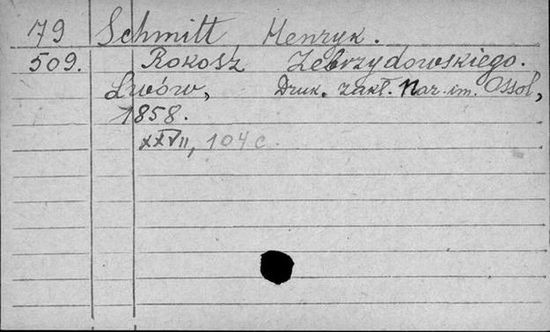 79 Schmitt Henryk.
509. Rokosz Zebrzydowskiego.
Lwów, Druk. zakł. Nar. im. Ossol,
1858.
XXVII, 104 c.